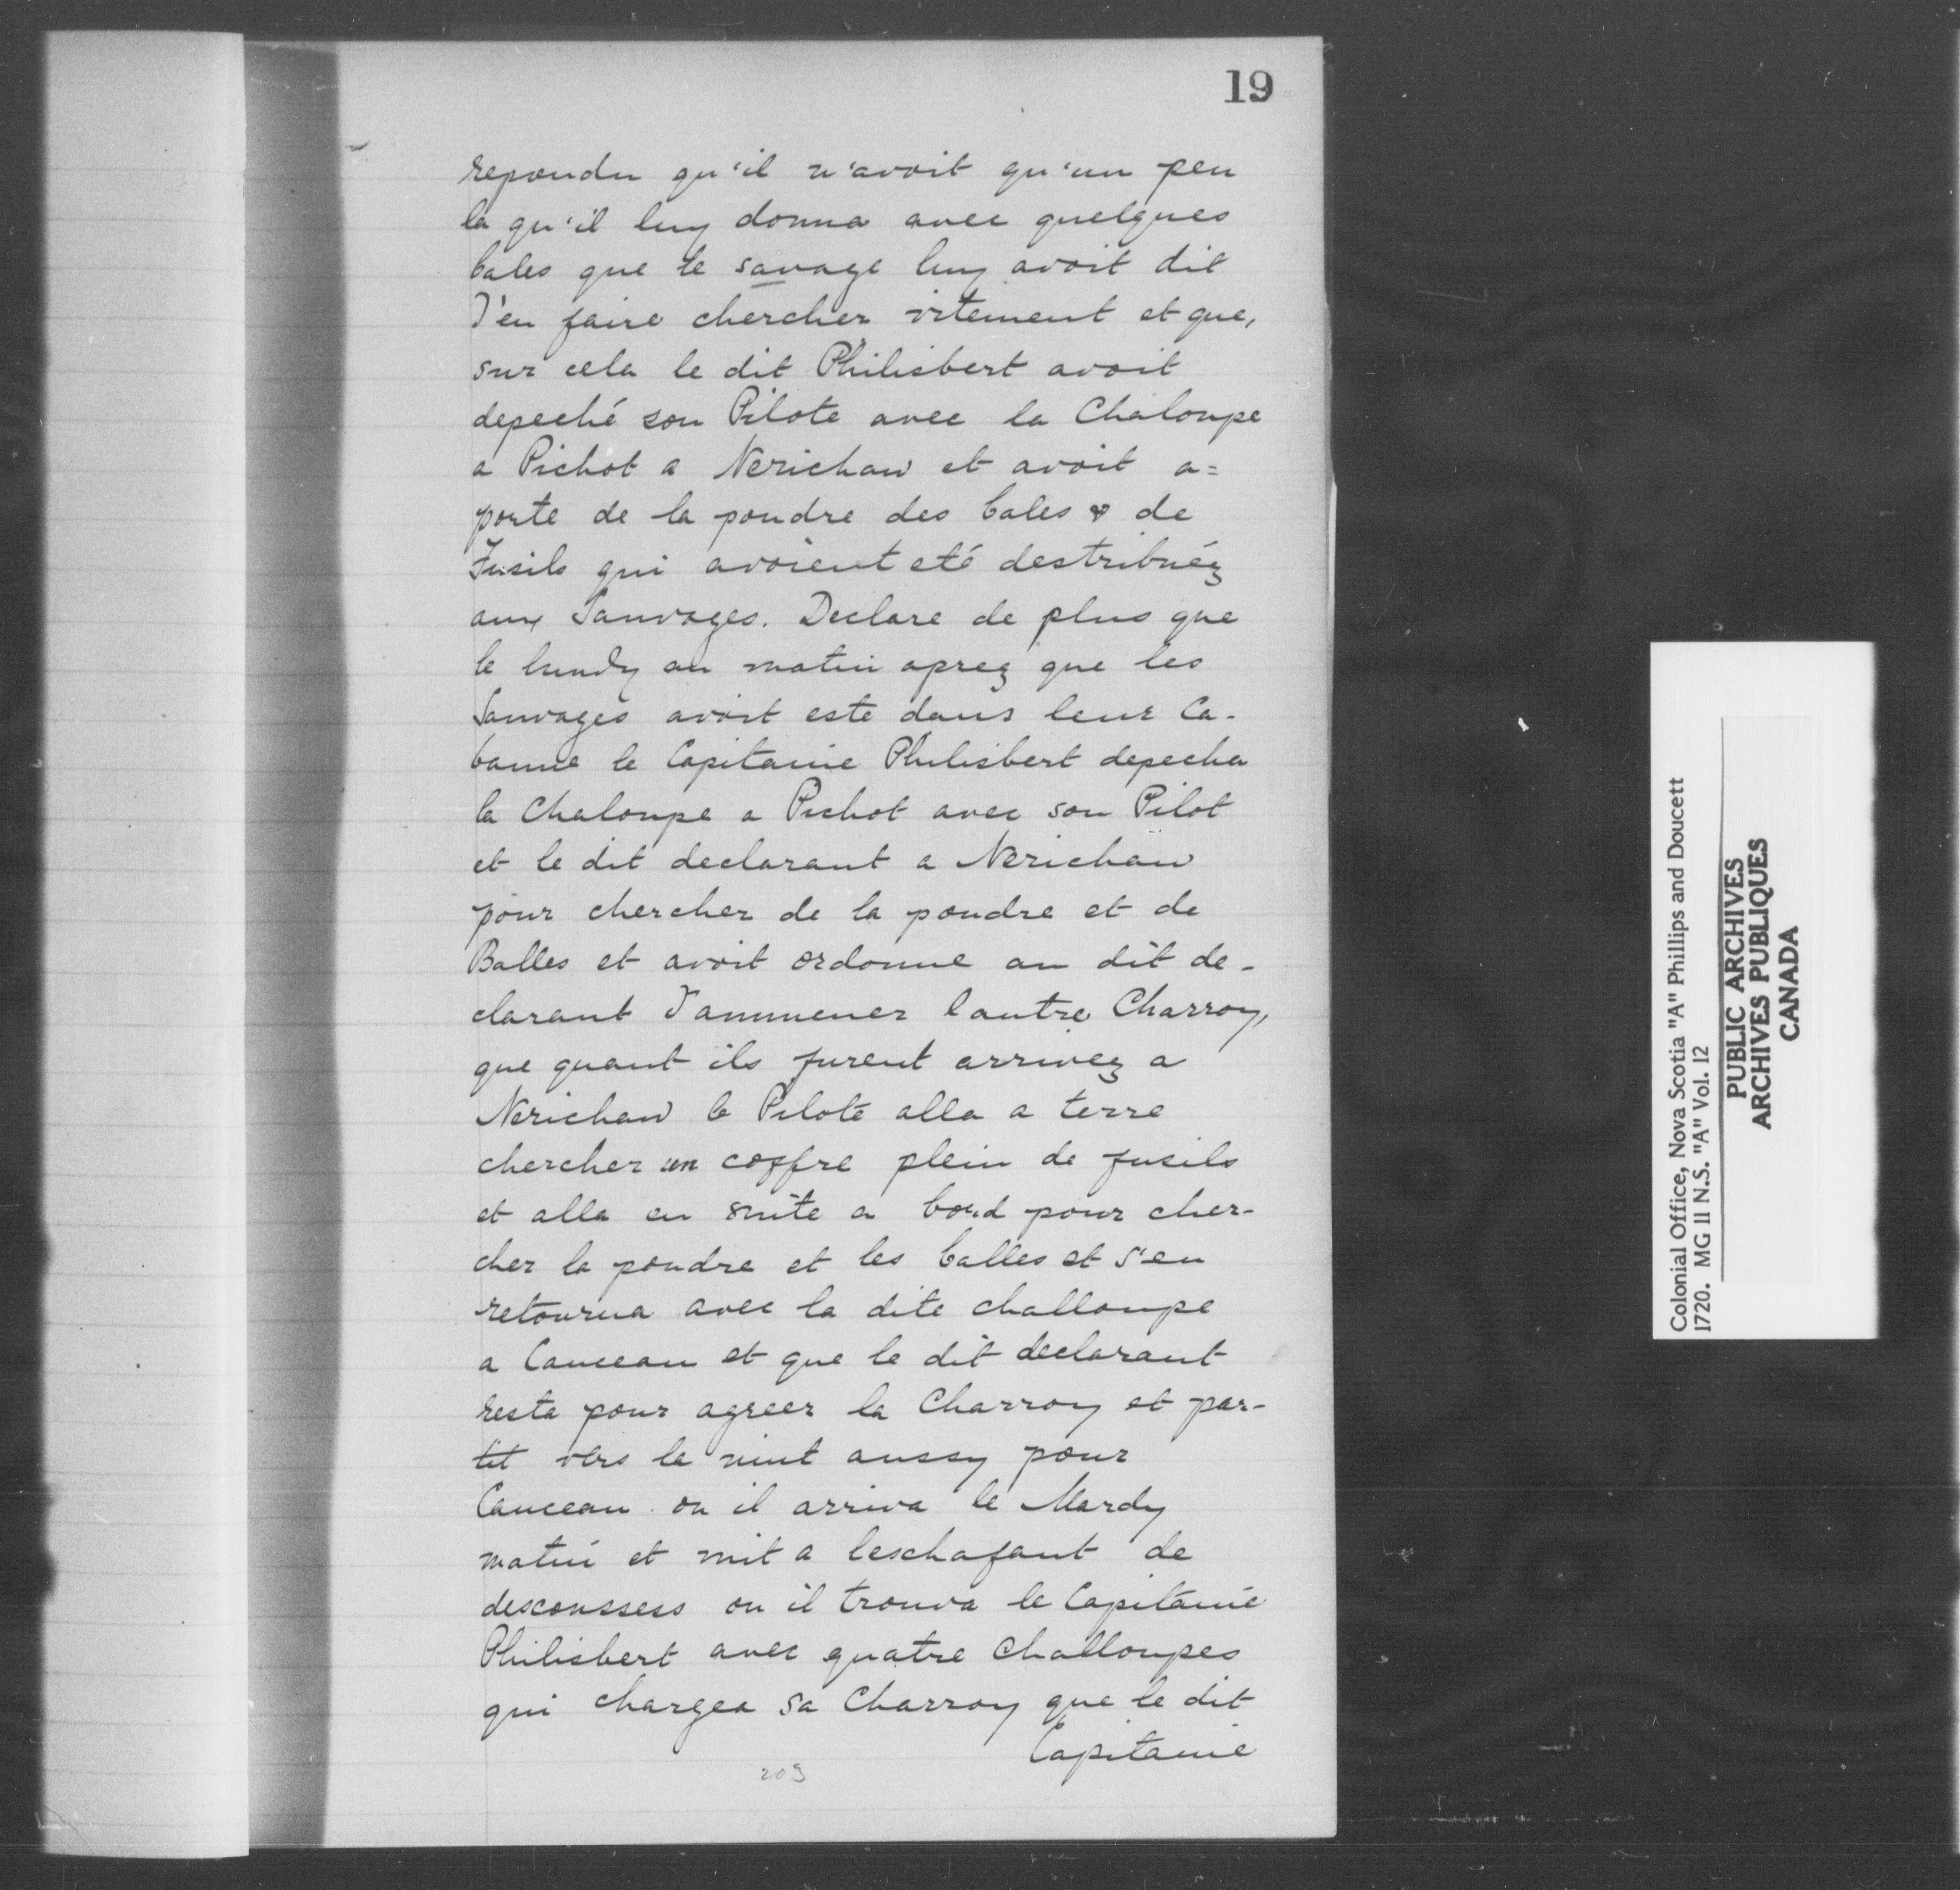 19
repondu qu'il n'avoit qu'un peu
la qu'il luy donna avec quelques
bales que le savage luy avoit dit
d'en faire chercher vitement et que,
sur cela le dit Philisbert avoit
depeché son Pilote avec la Chaloupe
a Pichot a Nerichaw et avoit a=
porte de la poudre des bales & de
Fusils qui avoient eté destribuéz
aux Sauvages. Declare de plus que
le lundy au matin aprez que les
Sauvages avoit este dans leur Ca-
banne le Capitaine Philisbert depecha
la Chaloupe a Pichot avec son Pilot
et le dit declarant a Nerichaw
pour chercher de la poudre et de
Balles et avoit ordonne au dit de-
clarant d'ammener lautre Charroy,
que quant ils furent arrivez a
Nerichaw le Pilote alla a terre
chercher un coffre plein de fusils
et alla en suite a bord pour cher-
cher la poudre et les balles et s'en
retourna avec la dite challoupe
a Canceau et que le dit declarant
resta pour agreer la Charroy et par-
tit vers le nuit aussy pour
Canceau ou il arriva le Mardy
matin et mit a leschafaut de
descoussess ou il trouva le Capitaine
Philisbert avec quatre challoupes
qui chargea sa Charroy que le dit
Capitaine
203
Colonial Office, Nova Scotia "A" Phillips and Doucett
1720. MG 11 N.S. "A" Vol. 12
PUBLIC ARCHIVES
ARCHIVES PUBLIQUES
CANADA